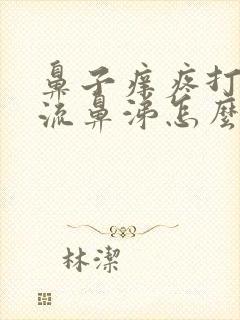 鼻子癢疼打
流鼻涕怎麼
林潔